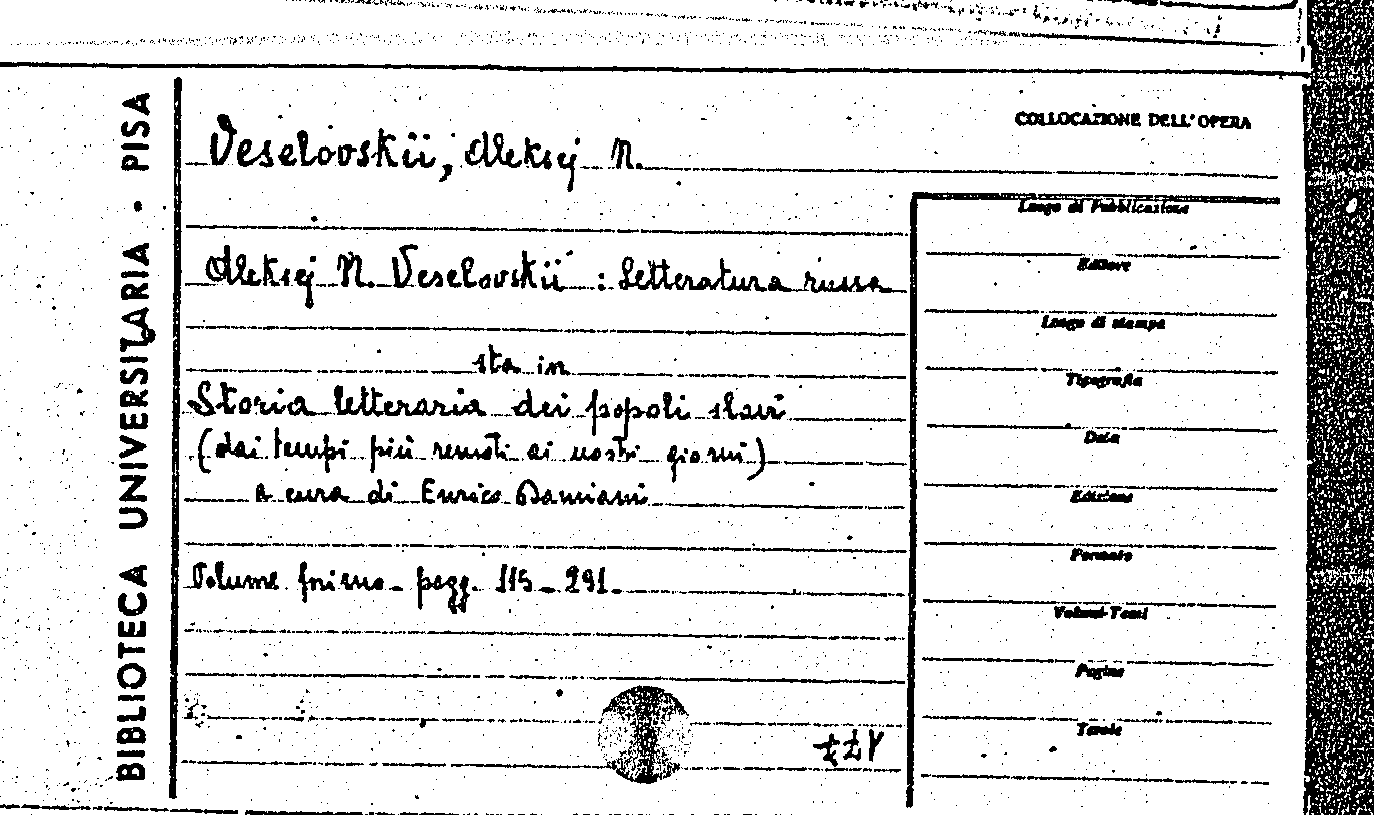 BIBLIOTECA UNIVERSITARIA · PISA
Veselovskii, Aleksej N.
Aleksej N. Veselovskii : Letteratura russa
sta in
Storia letteraria dei popoli slavi
(dai tempi più remoti ai nostri giorni)
a cura di Enrico Damiani
Volume primo - pagg. 115 - 291.
COLLOCAZIONE DELL'OPERA
Luogo di Pubblicazione
Editore
Luogo di stampa
Tipografia
Data
Edizione
Formato
Volumi-Tomi
Pagine
Tavole